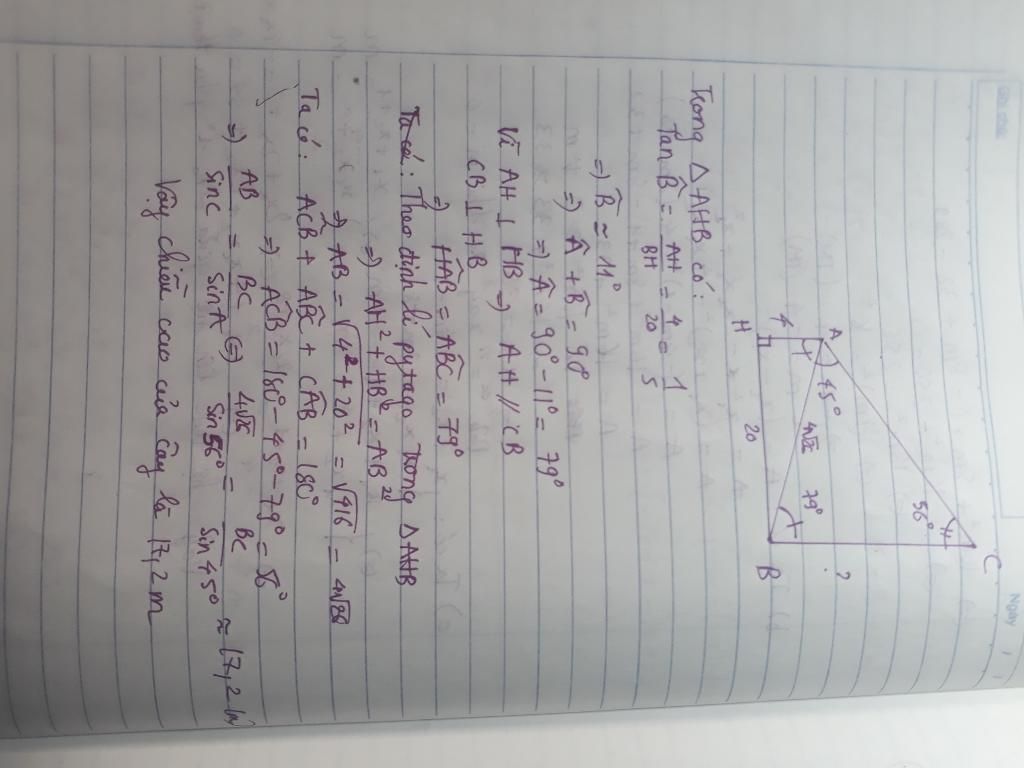 Ngày
A
45°
4
H
20
4√26
79°
56°
C
B
?
Trong △AHB có:
Tan B̂ = AH/BH = 4/20 = 1/5
=) B̂ ≈ 11°
=) Â + B̂ = 90°
=) Â = 90° - 11° = 79°
Vì AH ⊥ HB =) AH // CB
CB ⊥ HB
=) HÂB = AB̂C = 79°
Ta có: Theo định lí pytago trong △AHB
=) AH² + HB² = AB²
=) AB = √(4² + 20²) = √416 = 4√26
Ta có: AĈB + AB̂C + CÂB = 180°
=) AĈB = 180° - 45° - 79° = 56°
=) AB/sinC = BC/sinA (=) 4√26/sin56° = BC/sin45° ≈ 17,2 m
Vậy chiều cao của cây là 17,2 m